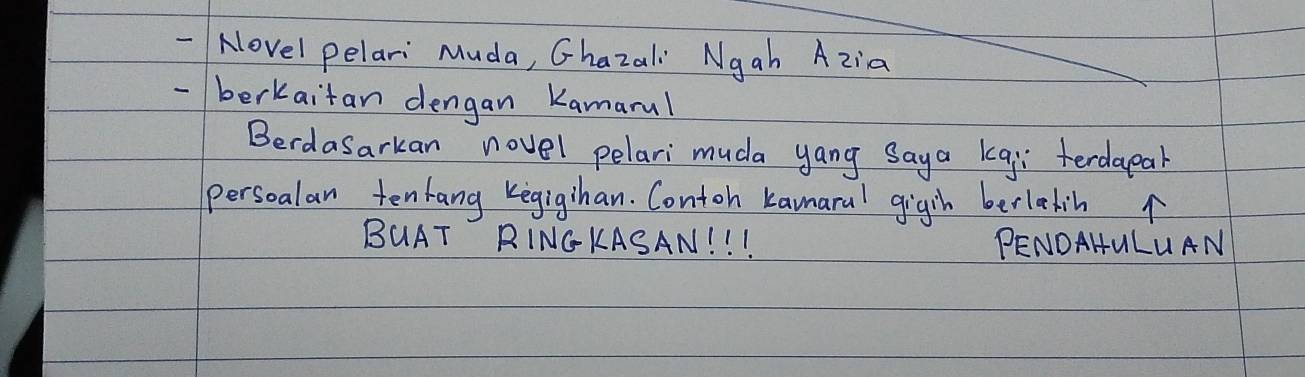 - Novel pelari Muda, Ghazali Ngah Azia
- berkaitan dengan Kamarul
Berdasarkan novel pelari muda yang saya kaji terdapat
persoalan tentang kegigihan. Contoh kamarul gigih berlatih ↑
BUAT RINGKASAN!!! PENDAHULUAN